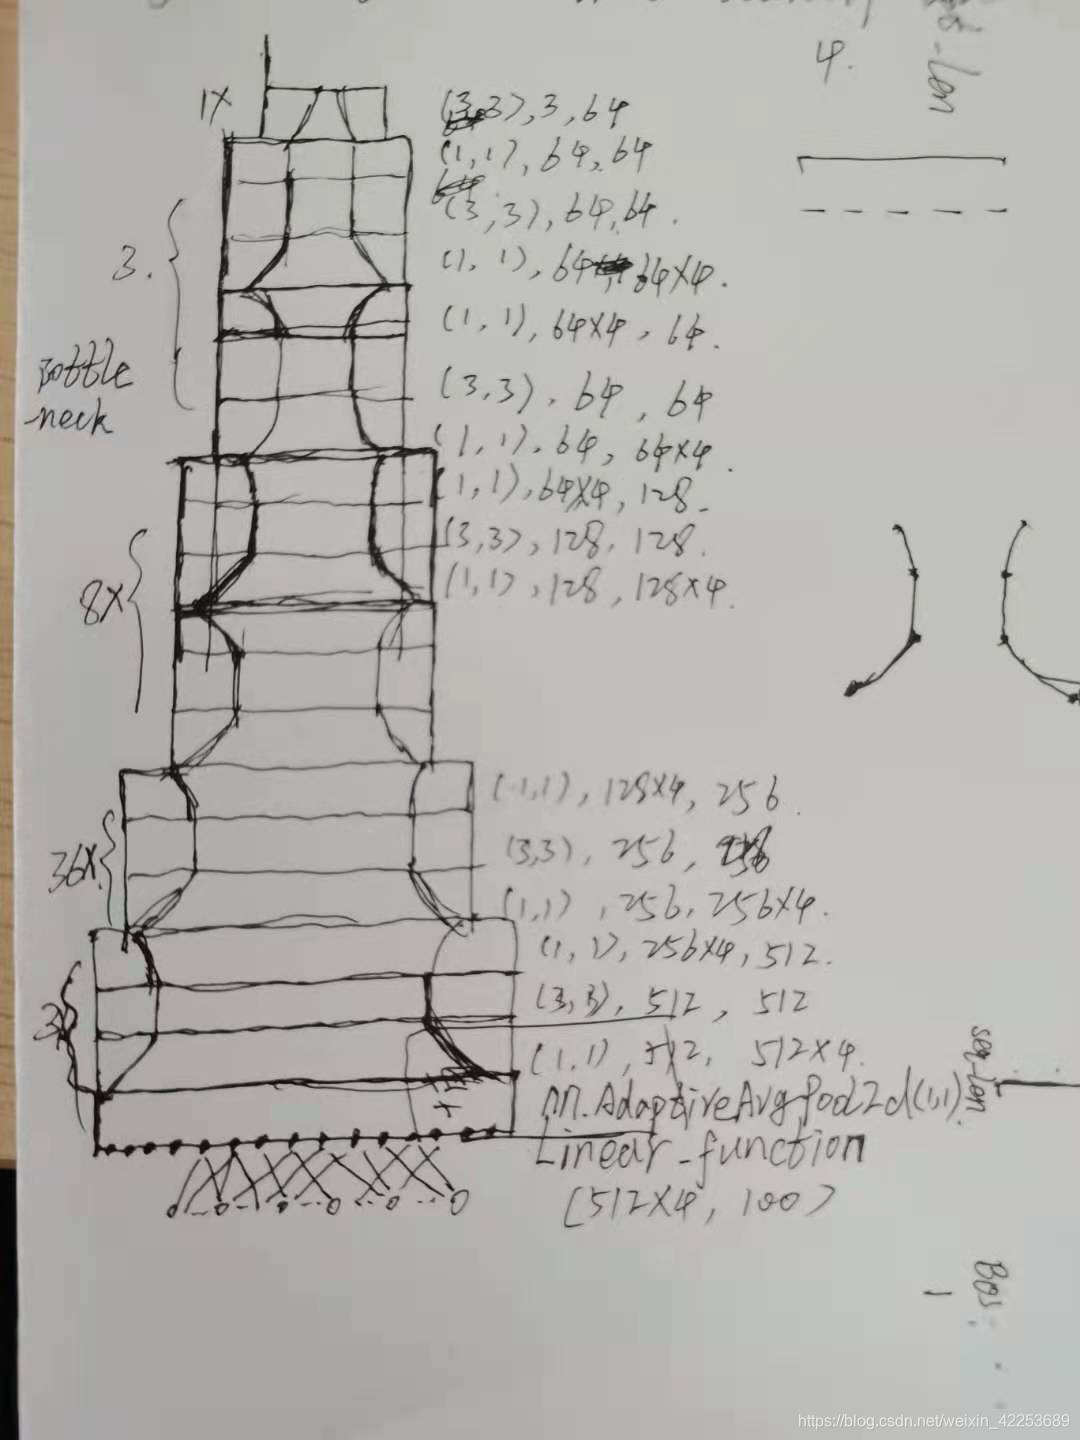 4.
-len
1X
(3,3), 3, 64
(1,1), 64, 64
(3,3), 64, 64.
3.
(1,1), 64, 64X4.
(1,1), 64X4, 64.
Bottle
-neck
(3,3), 64, 64
(1,1), 64, 64X4.
(1,1), 64X4, 128.
(3,3), 128, 128.
8X
(1,1), 128, 128X4.
(1,1), 128X4, 256.
36X.
(3,3), 256, 256
(1,1), 256, 256X4.
(1,1), 256X4, 512.
3X
(3,3), 512, 512
(1,1), 512, 512X4.
seq-len
nn.AdaptiveAvgPool2d(1,1).
Linear-function
(512X4, 100)
Bos:
https://blog.csdn.net/weixin_42253689